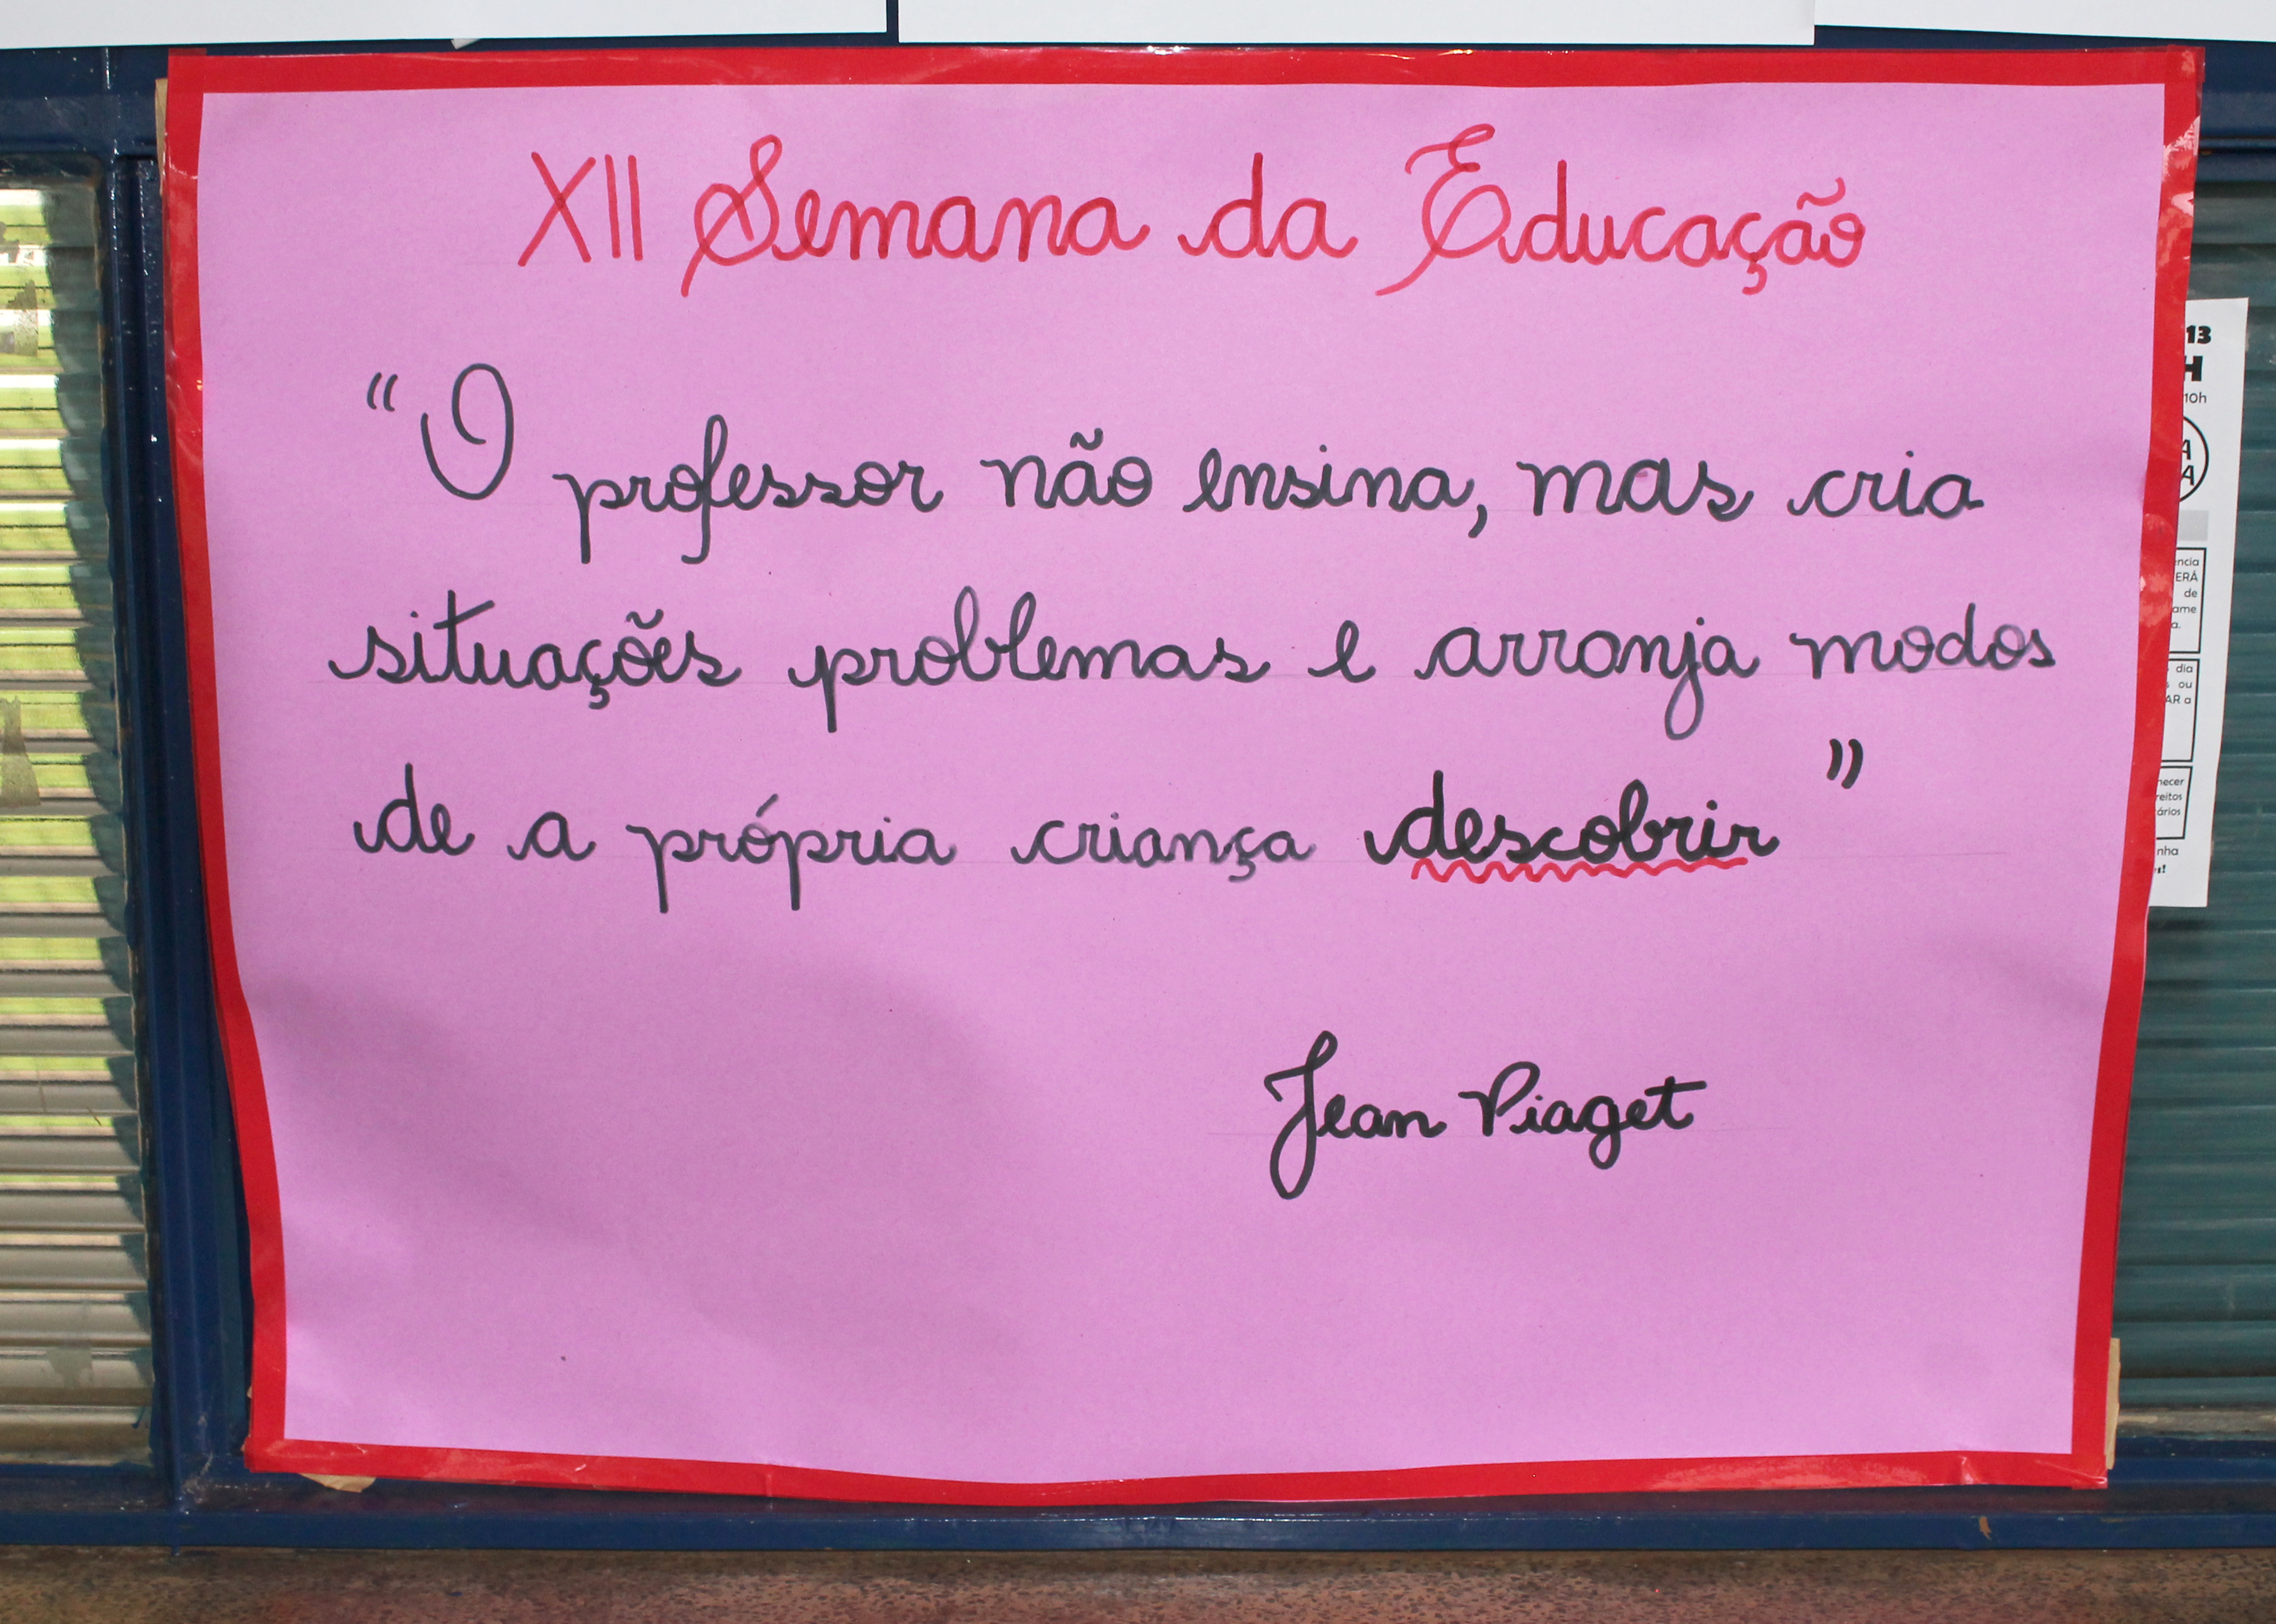 XII Semana da Educação
“O professor não ensina, mas cria
situações problemas e arranja modos
de a própria criança descobrir”
Jean Piaget
13
H
10h
A
A
ência
ERÁ
de
ame
a.
dia
s ou
AR a
hecer
reitos
ários
nha